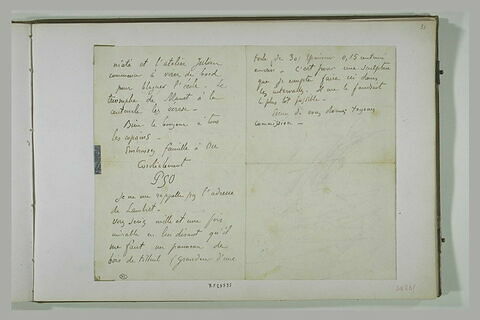 niaté et l'atelier Julian
commencer à virer de bord
pour blaguer l'école. Le
triomphe de Manet à la
centennale les écrase.
Bien le bonjour à tous
les copains.
Embrassez famille à
Cordialement
PGO
Je ne me rappelle pas l'adresse
de Lambert.
Vous serez mille et une fois
aimable en lui disant qu'il
me faut un panneau de
bois de tilleul (grandeur d'une
toile de 30) épaisseur 0,15 centimè
environ. C'est pour une sculpture
que je compte faire ici dans
les intervalles. Il me le faudrait
le plus tôt possible.
vous donner toujours
commission